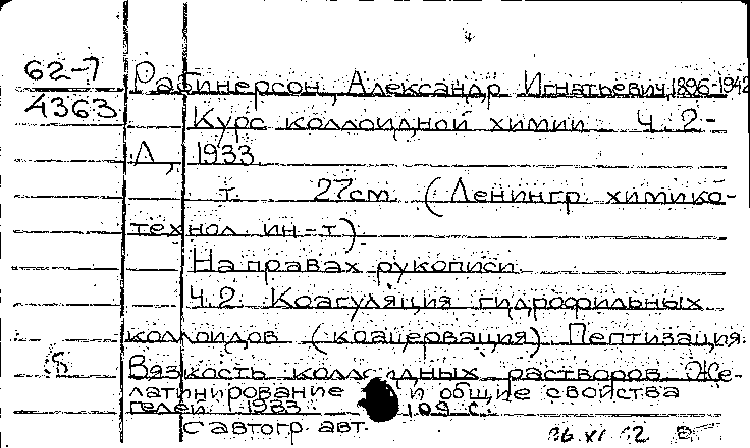 62-7 Рабинерсон, Александр Игнатьевич, 1896-1942
4363 Курс коллоидной химии Ч. 2-
Л, 1933
т. 27см (Ленингр. химико-
технол. ин-т).
На правах рукописи
Ч.2. Коагуляция гидрофильных
коллоидов (коацервация). Пептизация.
Вязкость коллоидных растворов. Же-
латинирование и общие свойства
гелей 1933 109 с.
с автогр. авт.